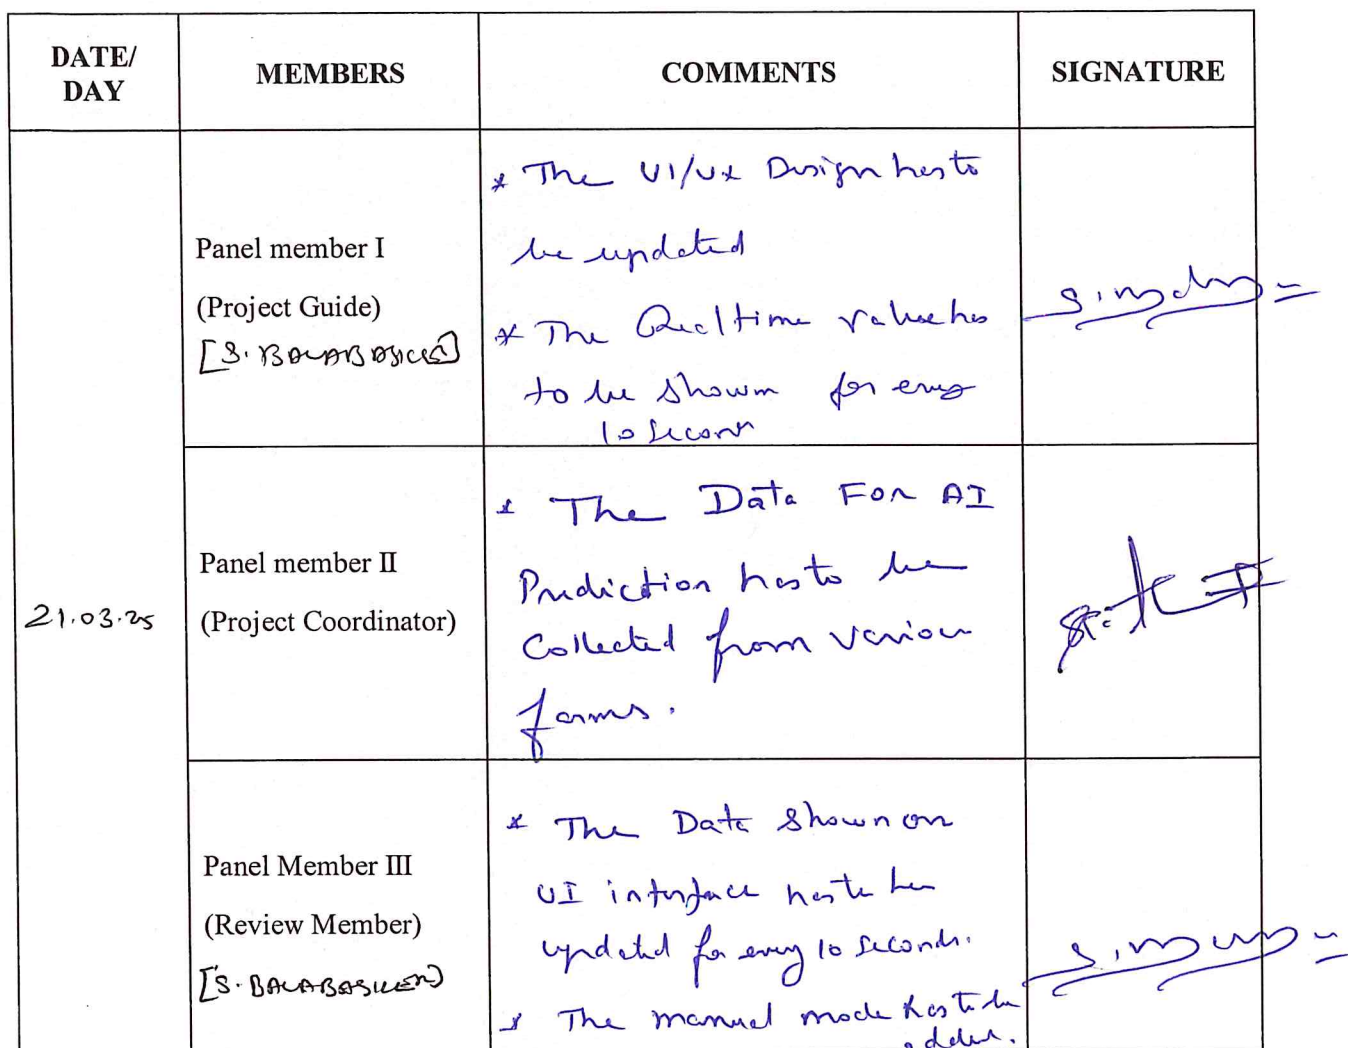 DATE/
DAY
MEMBERS
COMMENTS
SIGNATURE
21.03.25
Panel member I
(Project Guide)
[S. BALABASKER]
* The UI/UX Design has to
be updated
* The Realtime value has
to be shown for every
10 second
Panel member II
(Project Coordinator)
* The Data For AI
Prediction has to be
Collected from various
farms.
Panel Member III
(Review Member)
[S. BALABASKER]
* The Data Shown on
UI interface has to be
updated for every 10 seconds.
* The manual mode has to be
added.